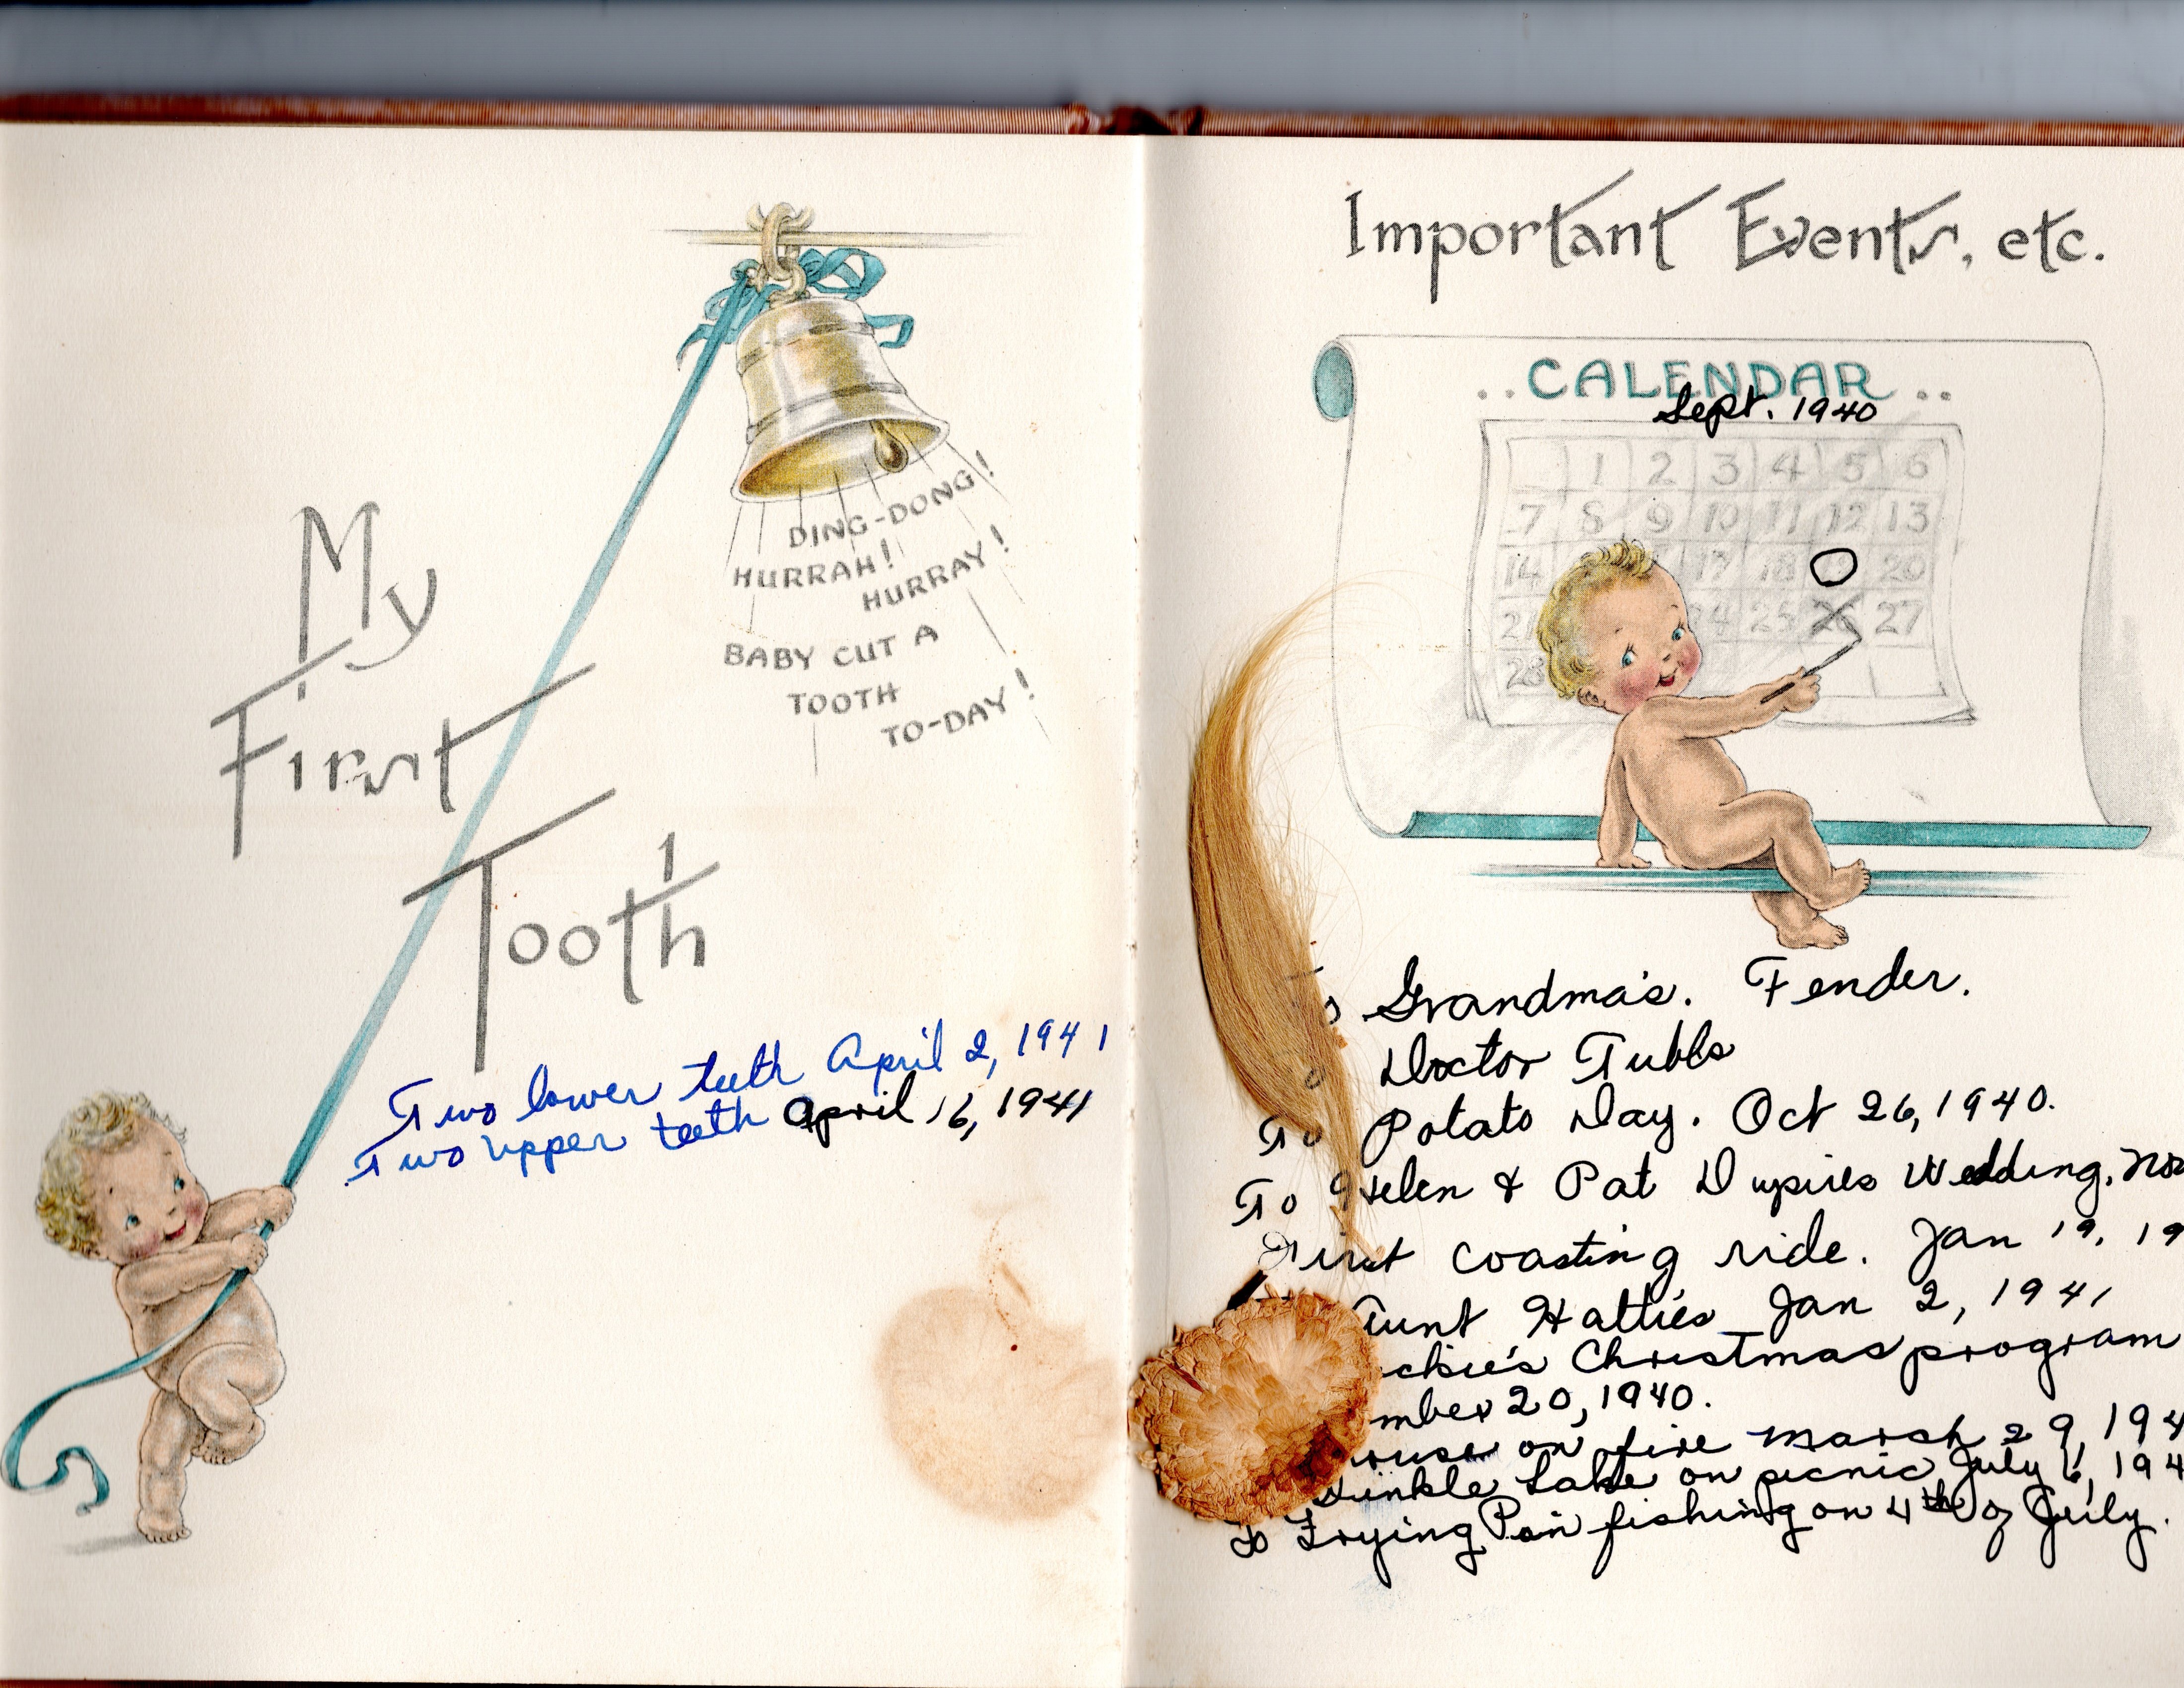 My
First
Tooth
DING-DONG!
HURRAH!
HURRAY!
BABY CUT A
TOOTH
TO-DAY!
Two lower teeth April 2, 1941
Two upper teeth April 16, 1941
Important Events, etc.
..CALENDAR..
Sept. 1940
1 2 3 4 5 6
7 8 9 10 11 12 13
14 17 18 20
24 25 26 27
28
Grandma's. Fender.
Doctor Tubbs
To Potato Day. Oct 26, 1940.
To Helen & Pat Dupires Wedding. Nov
First coasting ride. Jan 19, 19
Aunt Hatties Jan 2, 1941
ckie's Christmas program
mber 20, 1940.
house on fire March 29, 194
Lake on picnic July 6, 194
To Frying Pan fishing on 4th of July.